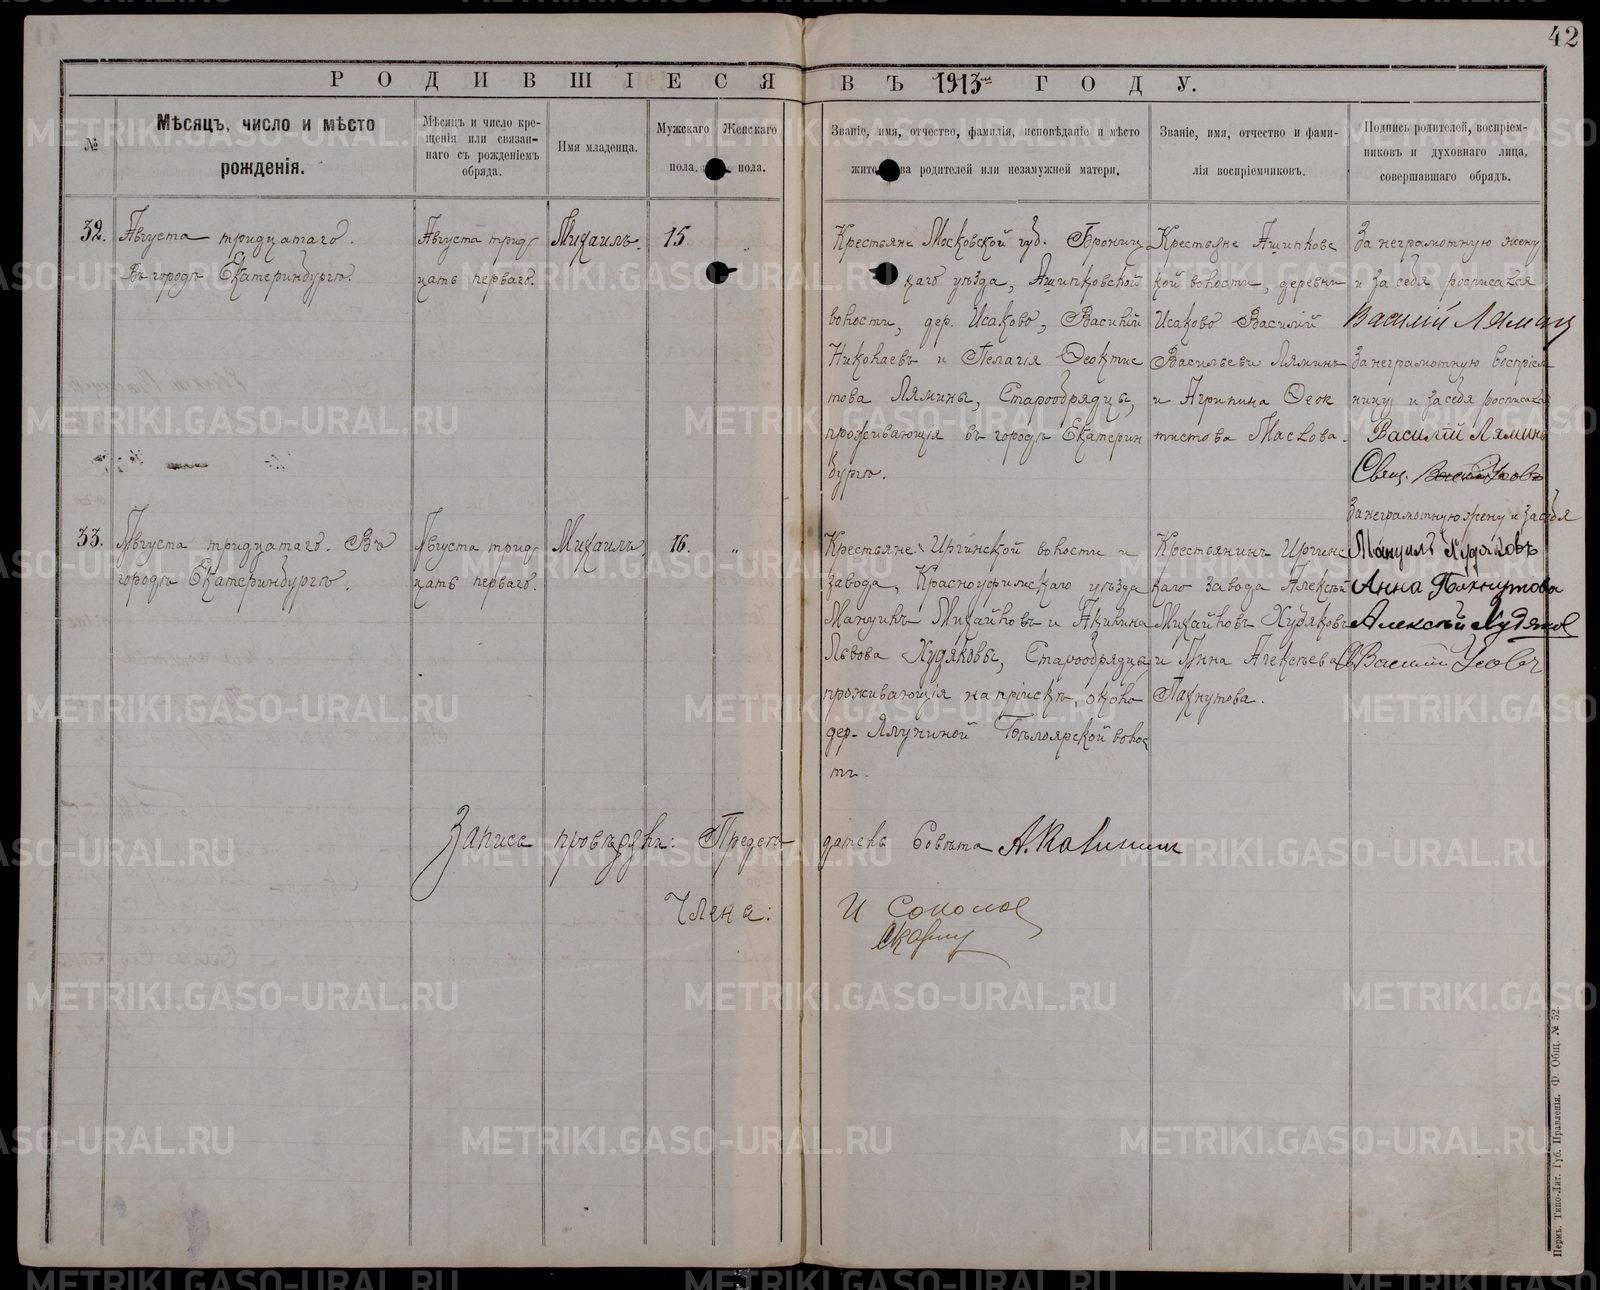 42
РОДИВШІЕСЯ ВЪ 1913мъ ГОДУ.
№
Мѣсяцъ, число и мѣсто
рожденія.
Мѣсяцъ и число кре-
щенія или связан-
наго съ рожденіемъ
обряда.
Имя младенца.
Мужскаго
пола.
Женскаго
пола.
Званіе, имя, отчество, фамилія, исповѣданіе и мѣсто
жительства родителей или незамужней матери.
Званіе, имя, отчество и фами-
лія воспріемчиковъ.
Подпись родителей, воспріем-
никовъ и духовнаго лица,
совершавшаго обрядъ.
32.
Августа тридцатаго.
Въ городѣ Екатеринбургѣ.
Августа трид-
цать перваго.
Михаилъ.
15
Крестьяне Московской губ. Бронниц
каго уѣзда, Ашитковской
волости, дер. Исаково, Василій
Николаевъ и Пелагія Феоктис
това Лямины, Старообрядцы,
проживающія въ городѣ Екатерин
бургѣ.
Крестьяне Ашитковс
кой волости, деревни
Исаково Василій
Васильевъ Ляминъ
и Агрипина Феок
тистова Маслова.
За неграмотную жену
и за себя росписался
Василій Лямин
За неграмотную воспріем
ницу и за себя росписался
Василій Ляминъ
Свящ.
33.
Августа тридцатаго. Въ
городѣ Екатеринбургѣ.
Августа трид-
цать перваго.
Михаилъ
16.
"
Крестьяне Иргинской волости и
завода, Красноуфимскаго уѣзда
Мануилъ Михайловъ и Акилина
Львова Худяковы, Старообрядцы,
проживающія на пріискѣ, около
дер. Ямучиной Бѣлоярской волос
ти.
Крестьянинъ Иргинс
каго завода Алексѣй
Михайловъ Худяковъ
и Анна Алексѣева
Пахнутова.
За неграмотную жену и за себя
Мануилъ Худяковъ
Анна Пахнутова
Алексѣй Худяков
Василій Усовъ
Запись провѣряли: Предсѣдатель Совѣта
Члены:
И Соколов
METRIKI.GASO-URAL.RU
Пермь. Типо-Лит. Губ. Правленія. Ф. Общ. № 52.